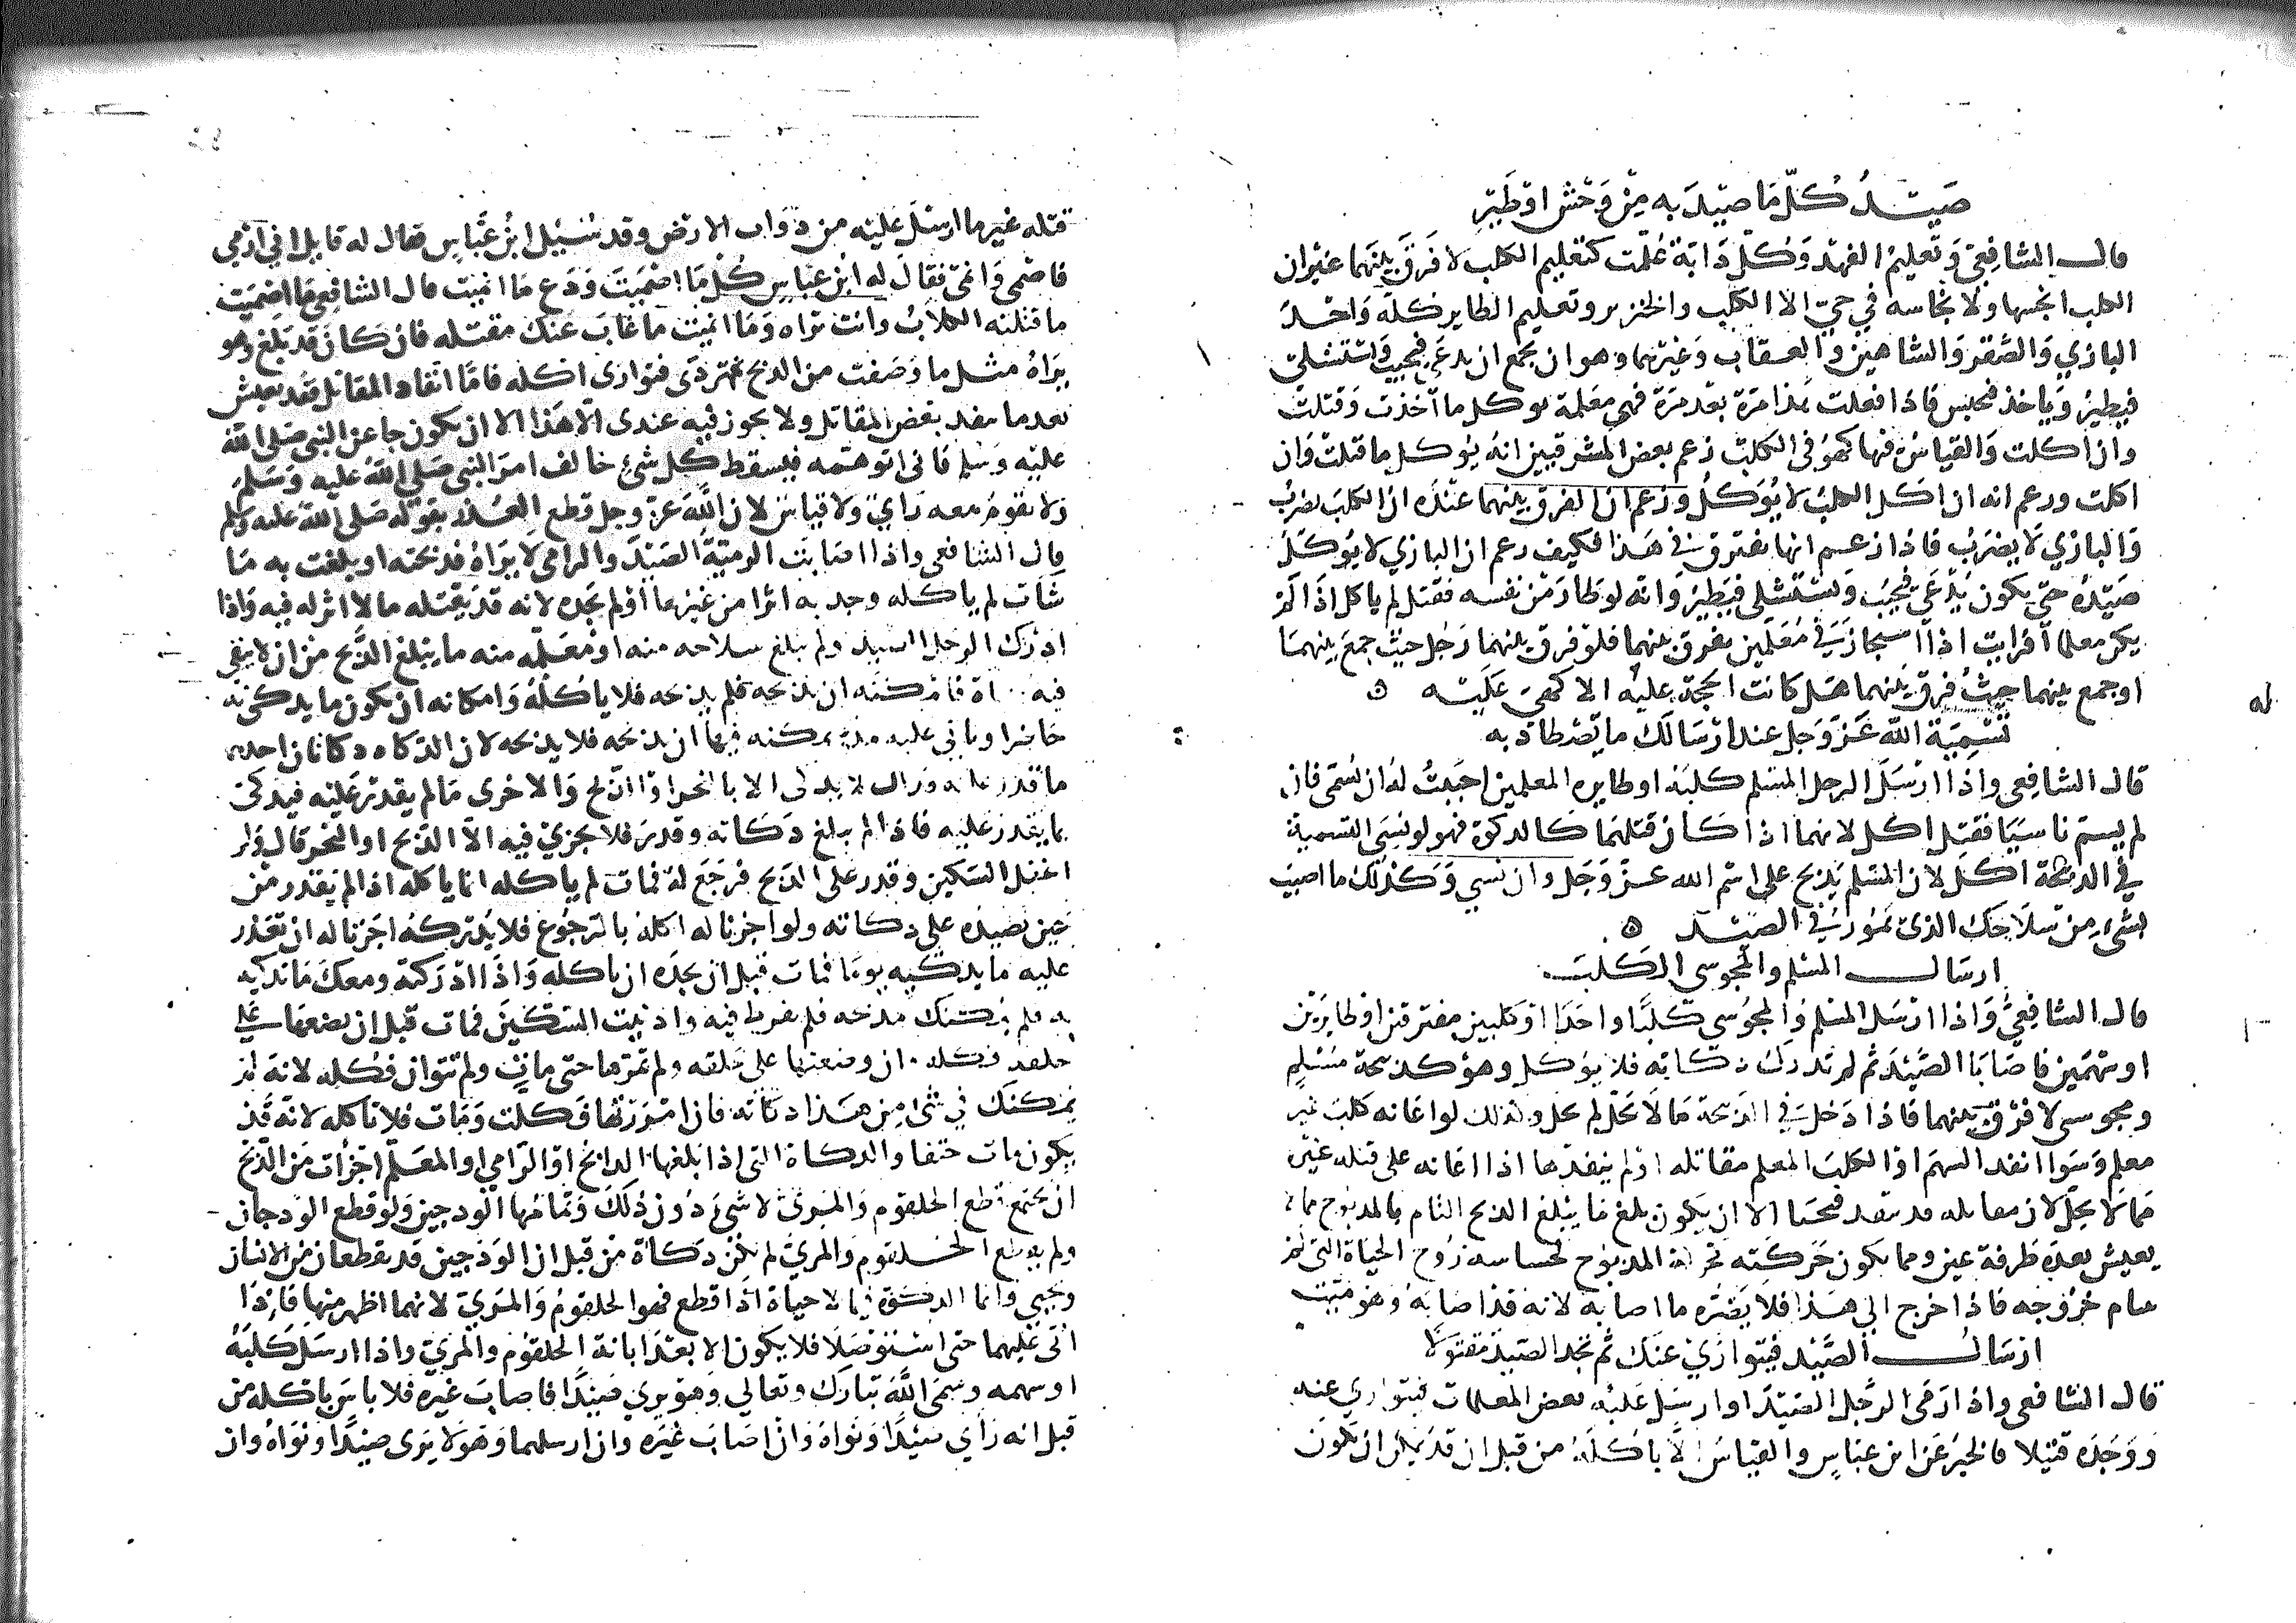 صيد كل ما صيد به من وحش او طير
قال الشافعي وتعليم الفهد وكل دابة علمت كتعليم الكلب لا فرق بينهما غير ان
الكلب انجسها ولا نجاسه في حي الا الكلب والخنزير وتعليم الطاير كله واحد
البازي والصقر والشاهين والعقاب وغيرها وهو ان يجمع ان يدعى فيجيب ويستشلى
فيطير وياخذ فيحبس فاذا فعلت هذا مرة بعد مرة فهي معلمة يوكل ما اخذت وقتلت
وان اكلت والقياس فيها كهو في الكلب زعم بعض المشرقيين انه يؤكل ما قتلت وان
اكلت وزعم انه اذا اكل الكلب لا يؤكل وزعم ان الفرق بينهما عنده ان الكلب يضرب
والبازي لا يضرب فاذا زعم انها يفترق في هذا فكيف زعم ان البازي لا يؤكل
صيده حتى يكون يدعى فيجيب ويستشلى فيطير وانه لو طار من نفسه فقتل لم ياكل اذا لم
يكن معلما افرايت اذا استجاز في معلمين يفرق بينهما فلو فرق بينهما رجل حيث جمع بينهما
او جمع بينهما حيث فرق بينهما هل كانت الحجة عليه الا كهي عليه ه له
تسمية الله عز وجل عند ارسالك ما تصطاد به
قال الشافعي واذا ارسل الرجل المسلم كلبه او طايره المعلمين احببت له ان يسمي فان
لم يسم ناسيا فقتل اكل لانهما اذا كان قتلهما كالذكوة فهو لو نسي التسمية
في الذبيحة اكل لان المسلم يذبح على اسم الله عز وجل وان نسي وكذلك ما اصيب
بشيء من سلاحك الذي يمور في الصيد ه
ارسال المسلم والمجوسي الكلب
قال الشافعي واذا ارسل المسلم والمجوسي كلبا واحدا او كلبين مفترقين او طايرين
او سهمين فاصابا الصيد ثم لم تدرك ذكاته فلا يؤكل وهو كذبيحة مسلم
ومجوسي لا فرق بينهما فاذا دخل في الذبيحة ما لا تحل لم تحل وكذلك لو اعانه كلب غير
معلم وسوا انفذ السهم او الكلب المعلم مقاتله او لم ينفذها اذا اعانه على قتله غيره
مما لا يحل لان مقاتله قد تنفذ فيحيا الا ان يكون بلغ ما يبلغ الذبح التام بالمذبوح مما لا
يعيش بعده طرفة عين ومما يكون حركته حركة المذبوح لحساسه روح الحياة التي لم
تتام خروجه فاذا خرج الى هذا فلا يضره ما اصابه لانه قد اصابه وهو ميت
ارسال الصيد فيتوارى عنك ثم تجد الصيد مقتولا
قال الشافعي واذا رمى الرجل الصيد او ارسل عليه بعض المعلمات فيتوارى عنه
ووجده قتيلا فالخبر عن ابن عباس والقياس الا ياكله من قبل ان قد يمكن ان يكون
قتله غير ما ارسل عليه من دواب الارض وقد سئيل ابن عباس فقال له قايل اني ارمي
فاصمي وانمي فقال له ابن عباس كل ما اصميت ودع ما انميت قال الشافعي ما اصميت
ما قتلته الكلاب وانت تراه وما انميت ما غاب عنك مقتله فان كان قد بلغ وهو
يراه مثل ما وصفت من الذبح ثم تردى فتوارى اكله فاما انفاذ المقاتل فقد يعيش
بعد ما ينفذ بعض المقاتل ولا يجوز فيه عندي الا هذا الا ان يكون جا عن النبي صلى الله
عليه وسلم فاني اتوهمه فيسقط كل شئ خالف امر النبي صلى الله عليه وسلم
ولا يقوم معه راي ولا قياس لان الله عز وجل قطع العذر بقوله صلى الله عليه وسلم
قال الشافعي واذا اصابت الرمية الصيد والرامي لا يراه فذبحته او بلغت به ما
شات لم ياكله وجد به اثرا من غيرها او لم يجده لانه قد يقتله ما لا اثر له فيه واذا
ادرك الرجل الصيد ولم يبلغ سلاحه منه او معلمه منه ما يبلغ الذبح من ان لا يبقى
فيه حياة فامكنه ان يذبحه فلم يذبحه فلا ياكله وامكانه ان يكون ما يذكي به
حاضرا وياتي عليه مدة يمكنه فيها ان يذبحه فلا يذبحه لان الذكاه ذكاتان احديهما
ما قدر عليه فذلك لا يذكى الا بالنحر او الذبح والاخرى ما لم يقدر عليه فيذكى
بما يقدر عليه فاذا لم يبلغ ذكاته وقدر فلا يجزئ فيه الا الذبح او النحر قال فان
اغفل السكين وقدر على الذبح فرجع له فمات لم ياكله انما ياكله اذا لم يقدر من
حين يصيده على ذكاته ولو اجزنا له اكله بالرجوع فلا يدركه اجزنا له ان تعذر
عليه ما يذكيه يوما فمات قبل ان يجده ان ياكله واذا ادركته ومعك ما تذكيه
به فلم يمكنك مذبحه فلم تفرط فيه وادنيت السكين فمات قبل ان تضعها على
حلقه فكله وان وضعتها على حلقه ولم تمرها حتى مات ولم تتوان فكله لانه لم
يمكنك في شئ من هذا ذكاته فان امررتها فكلت ومات فلا تاكله لانه قد
يكون مات حتفا والذكاة التي اذا بلغها الذابح او الرامي او المعلم اجزات من الذبح
ان يجتمع قطع الحلقوم والمرئ لا شئ دون ذلك وتمامها الودجين ولو قطع الودجان
ولم يقطع الحلقوم والمرئ لم تكن ذكاة من قبل ان الودجين قد يقطعان من الانسان
ويحيى وانما الذكوة فيما لا حياة اذا قطع فهو الحلقوم والمرئ لانهما اظهر منها فاذا
اتى عليهما حتى استوصلا فلا يكون الا بعد ابانة الحلقوم والمرئ واذا ارسل كلبه
او سهمه وسمى الله تبارك وتعالى وهو يرى صيدا فاصاب غيره فلا باس باكله من
قبل انه راى صيدا ونواه وان اصاب غيره وان ارسلهما وهو لا يرى صيدا ونواه وان